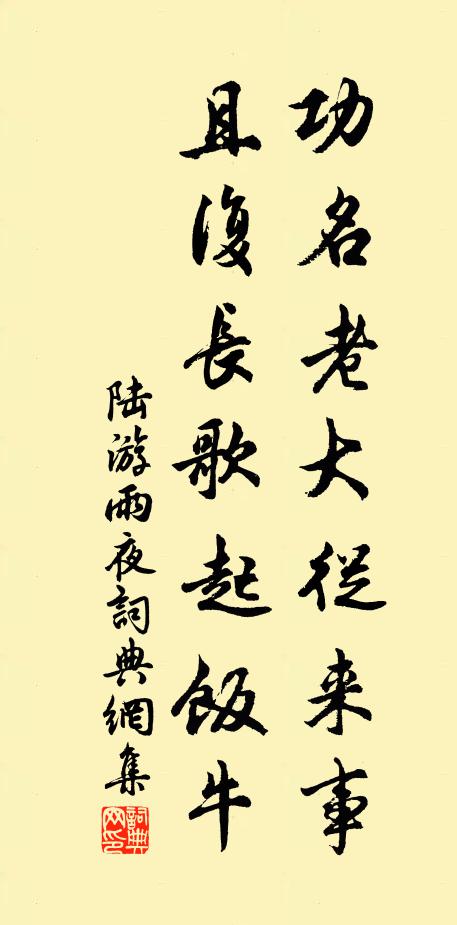 功名老大從来事
且復長歌起飯牛
陆游雨夜詞典網集
詞典网印